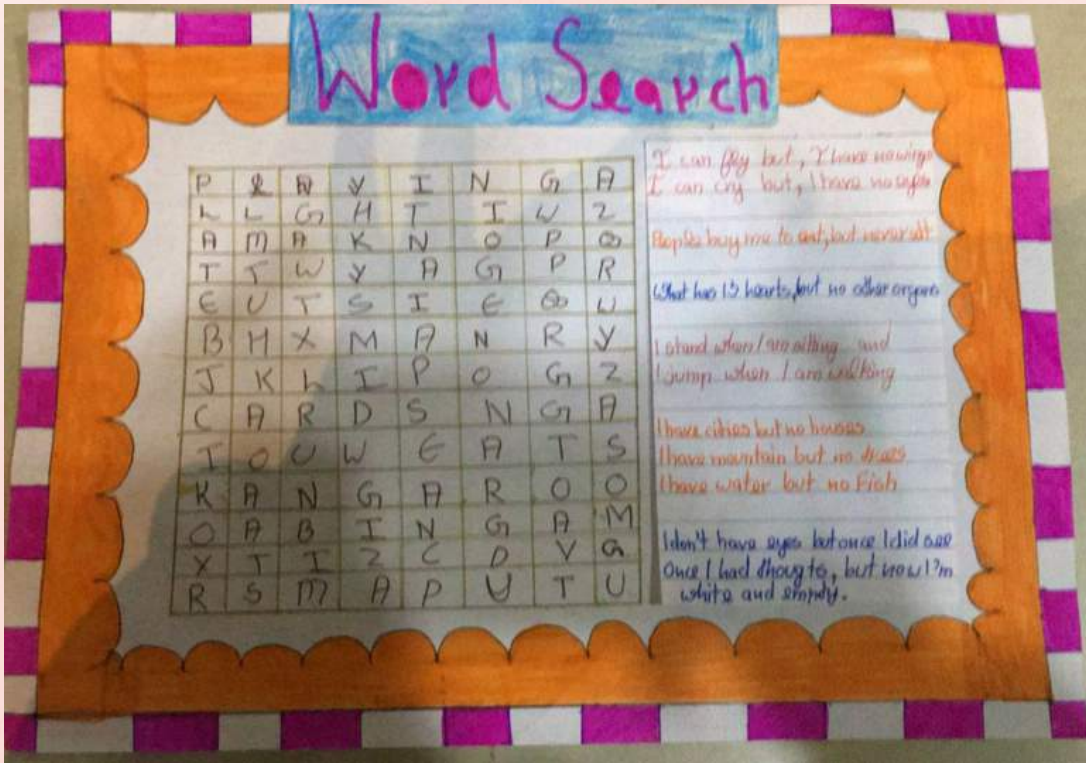 Word Search
P L A Y I N G A
L L G H T I W Z
A M A K N O P Q
T T W Y A G P R
E U T S I E Q U
B H X M A N R Y
J K L I P O G Z
C A R D S N G A
I O U W E A T S
K A N G A R O O
O A B I N G A M
X T I Z C D V G
R S M A P U T U
I can fly but, I have no wings
I can cry but, I have no eyes
People buy me to eat, but never eat
What has 13 hearts, but no other organs
I stand when I am sitting and
I jump when I am walking
I have cities but no houses
I have mountain but no trees
I have water but no Fish
I don't have eyes but once I did see
Once I had thougts, but now I'm
white and empty.